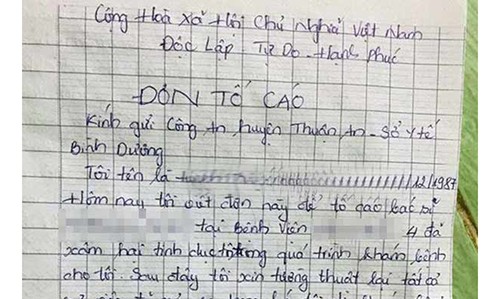 Cộng Hoà Xã Hội Chủ Nghĩa Việt Nam
Độc Lập Tự Do Hạnh Phúc
ĐƠN TỐ CÁO
Kính gửi Công An huyện Thuận An - Sở Y tế
Bình Dương
Tôi tên là 12/1987
Hôm nay tôi viết đơn này để tố cáo bác sĩ
tại Bệnh Viện 4 đã
xâm hại tình dục trong quá trình khám bệnh
cho tôi. Sau đây tôi xin tường thuật lại tất cả